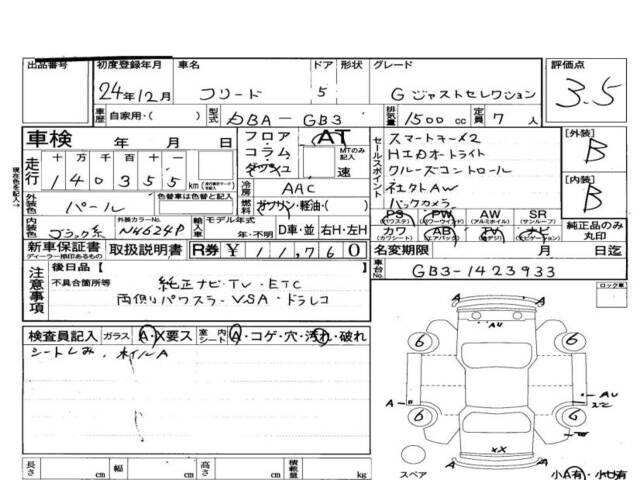 出品番号 初度登録年月 車名 ドア 形状 グレード 評価点
24年12月 フリード 5 G ジャストセレクション 3.5
車歴 自家用・( ) 型式 DBA-GB3 排気量 1500cc 定員 7人
車検 年 月 日 フロア・コラム・ AT MTのみ記入 速
走行 十万千百十 140355km
色替車は色替と記入
冷房 AAC
燃料 ガソリン・軽油・( )
外装色 パール
内装色 ブラック系 外装カラーNo. NH624P 輸入車 モデル年式 年・不明 D車・並 右H・左H
セールスポイント
スマートキー×2
HIDオートライト
クルーズコントロール
社外AW
バックカメラ
PS (パワステ) PW (パワーウインド) AW (アルミホイル) SR (サンルーフ)
カワ (カワシート) AB (エアバック) TV (デジ) ナビ (ナビゲーション)
純正品のみ丸印
[外装] B
[内装] B
現在色を記入→
新車保証書 ディーラー捺印あるもの 取扱説明書 R券 ¥11,760 名変期限 月 日迄
車台No. GB3-1423933
注意事項 後日品【 】
不具合箇所等 純正ナビ・TV・ETC
両側パワスラ・VSA・ドラレコ
検査員記入 ガラス A・X要ス 室内シート A・コゲ・穴・汚れ・破れ
シートしみ、ホイルA
ロック車
A A
AU
6 6
A AU
6 6
XX
A A
スペア 小A有・小U有
長さ cm 幅 cm 高さ cm 積載量 kg